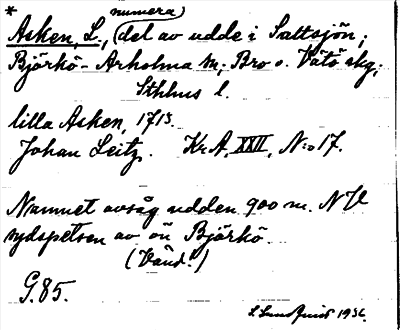 numera)
* Asken, L., (del av udde i Saltsjön;
Björkö-Arholma sn; Bro o. Vätö skg;
Sthlms l.
lilla Asken, 1713
Johan Leitz. Kr.A. XXII, N:o 17.
Namnet avsåg udden 900 m. NV
sydspetsen av ön Björkö.
(Vänd!)
G.85.
S. Lundquist 1936.